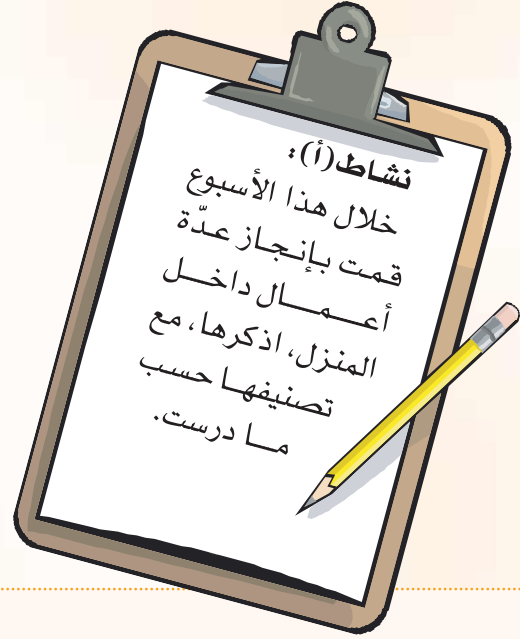 نشاط (أ) :
خلال هذا الأسبوع
قمت بإنجاز عدّة
أعـــمـــال داخـــل
المنزل، اذكرها، مع
تصنيفهـا حسب
مـــا درست.